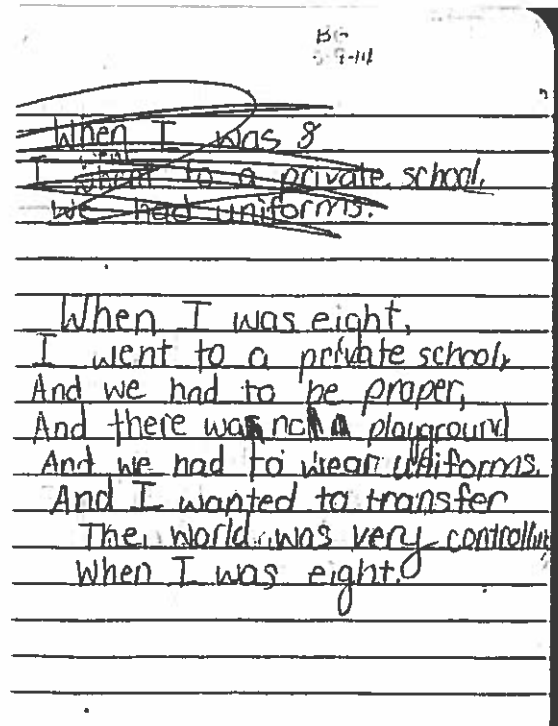 When I was 8
I went to a private school.
We had uniforms.
When I was eight,
I went to a private school,
And we had to be proper,
And there was no playground
And we had to wear uniforms.
And I wanted to transfer
The world was very controlling
When I was eight.